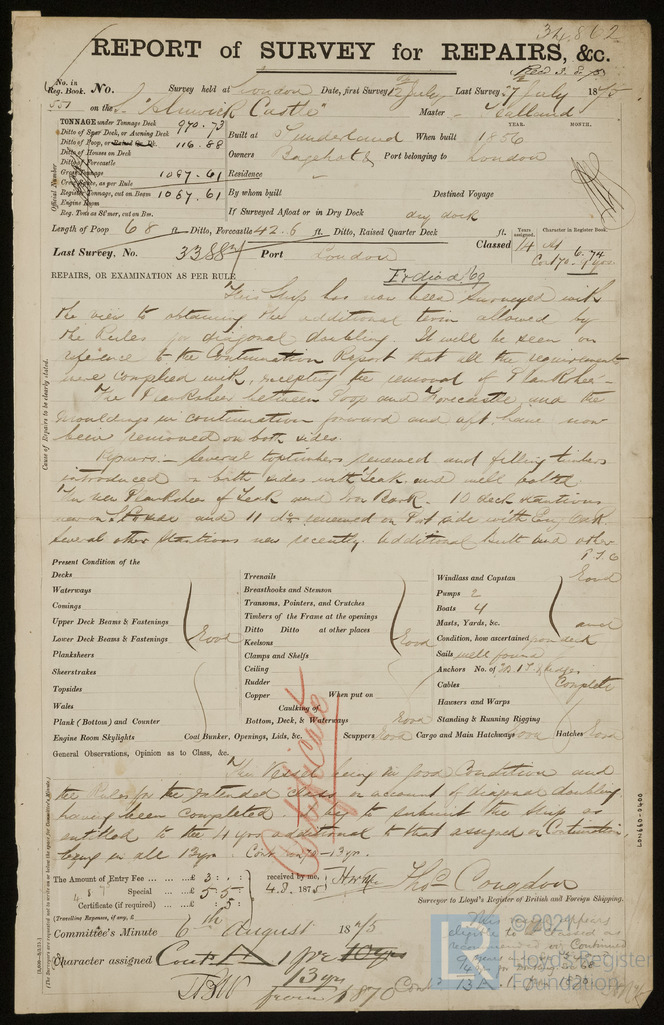 34,862
REPORT of SURVEY for REPAIRS, &c.
No. in Reg. Book. No. Survey held at London Date, first Survey 12 July Last Survey 27 July 1875
551 on the "Alnwick Castle" Master
TONNAGE under Tonnage Deck 970.73
Ditto of Spar Deck, or Awning Deck
Ditto of Poop, or Raised Qr. Dk. 116.88
Ditto of Houses on Deck
Ditto of Forecastle
Gross Tonnage 1087.61
Crew Space, as per Rule
Register Tonnage, cut on Beam 1087.61
Engine Room
Reg. Tons as St'mer, cut on Bm.
Official Number
YEAR. MONTH.
Built at Sunderland When built 1856
Owners Port belonging to London
Residence
By whom built Destined Voyage
If Surveyed Afloat or in Dry Dock dry dock
Length of Poop 68 ft. Ditto, Forecastle 42.6 ft. Ditto, Raised Quarter Deck ft.
Classed Years assigned. 14 Character in Register Book. A1
Last Survey, No. Port London
REPAIRS, OR EXAMINATION AS PER RULE
Cause of Repairs to be clearly stated.
This Ship has now been Surveyed with
the view to obtaining the additional term allowed by
the Rules for diagonal doubling. It will be seen on
reference to the Continuation Report that all the requirements
were complied with, excepting the removal of Planksheer -
The Planksheer between Poop and Forecastle, and the
mouldings in continuation forward and aft, have now
been removed on both sides.
Repairs:- Several toptimbers renewed and filling timbers
introduced on both sides with Teak and well bolted
The new Planksheer of Teak and Iron Bark. 10 deck stantions
new on St side and 11 do renewed on Port side with Eng Oak
several other stantions new recently. Additional bulk and other
P.T.O
Present Condition of the
Decks
Waterways
Comings
Upper Deck Beams & Fastenings
Lower Deck Beams & Fastenings Good
Planksheers
Sheerstrakes
Topsides
Wales
Plank (Bottom) and Counter
Engine Room Skylights
Treenails
Breasthooks and Stemson
Transoms, Pointers, and Crutches
Timbers of the Frame at the openings
Ditto Ditto at other places Good
Keelsons
Clamps and Shelfs
Ceiling
Rudder
Copper When put on
Caulking of
Bottom, Deck, & Waterways Good
Coal Bunker, Openings, Lids, &c. Scuppers Good Cargo and Main Hatchways Good Hatches Good
Windlass and Capstan Good
Pumps 2
Boats 4
Masts, Yards, &c.
Condition, how ascertained from deck
Sails well found
Anchors No. of
Cables Complete
Hawsers and Warps
Standing & Running Rigging
General Observations, Opinion as to Class, &c.
Certificate
This Vessel being in good Condition and
the Rules for the extended Class on account of diagonal doubling
having been completed I beg to submit the Ship as
entitled to the 4 yrs additional to that assigned on Continuation,
being in all 13 yrs.
The Amount of Entry Fee ... £ 3 : :
Special ... £ 5 : 5 :
Certificate (if required) ... £ : 5 :
(Travelling Expenses, if any, £ )
received by me,
4.8.1875
Thos Congdon
Surveyor to Lloyd's Register of British and Foreign Shipping.
Committee's Minute 6th August 1875
Character assigned Contd A 1 for 10 yrs
13 yrs
from 1870
LON660-0400
LR
© 2021
Lloyd's Register
Foundation